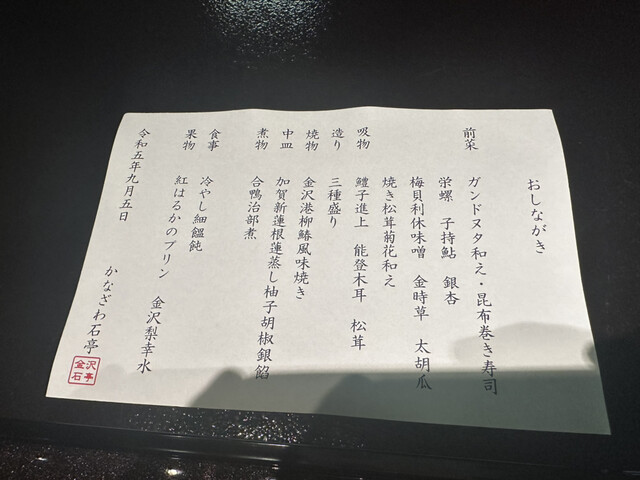 おしながき
前菜 ガンドヌタ和え・昆布巻き寿司
栄螺 子持鮎 銀杏
梅貝利休味噌 金時草 太胡瓜
焼き松茸菊花和え
吸物 鱧子進上 能登木耳 松茸
造り 三種盛り
焼物 金沢港柳鰆風味焼き
中皿 加賀新蓮根蓮蒸し柚子胡椒銀餡
煮物 合鴨治部煮
食事 冷やし細饂飩
果物 紅はるかのプリン 金沢梨幸水
令和五年九月五日 かなざわ石亭
金沢石亭